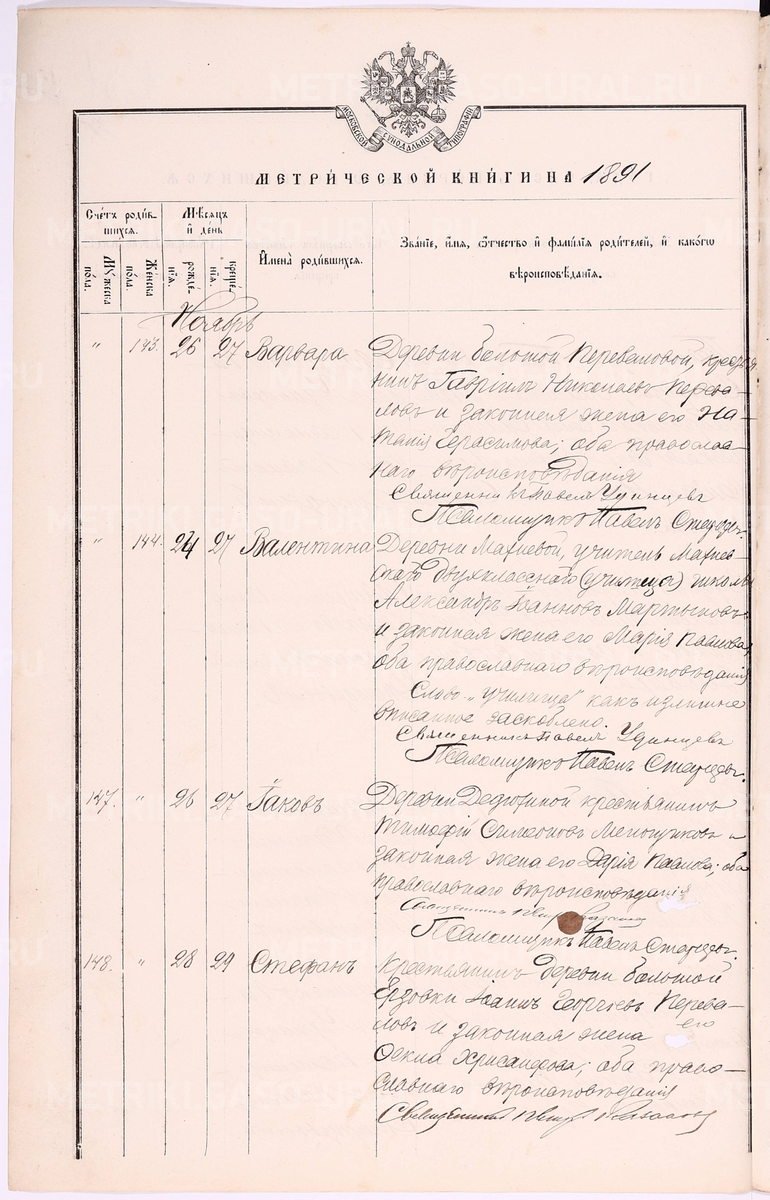 МОСКОВСКОЙ СУНОДАЛЬНОЙ ТИПОГРАФІИ
МЕТРИ́ЧЕСКОЙ КНИ́ГИ НА 1891
Сче́тъ роди́в-
шихся.
Мѣ́сяцъ
и҆ де́нь
И҆мена̀ роди́вшихся.
Зва́нїе, и҆́мя, ѻ҆́тчество и҆ фами́лїя роди́телей, и҆ како́гѡ
вѣроисповѣ́данїѧ.
Мꙋ́жеска
по́ла.
Же́нска
по́ла.
рожде́-
нїя.
креще́-
нїя.
Ноябрь
" 143. 26 27 Варвара Деревни Большой Переваловой, кресть-
нинъ Гавріилъ Николаевъ Перева-
ловъ и законная жена его На-
талія Герасимова; оба православ-
наго вѣроисповѣданія
Священникъ Павелъ Удинцевъ
Псаломщикъ Павелъ
" 144. 24 27 Валентина Деревни Махневой, учитель Махнев-
скаго двухкласснаго (училища) школы
Александръ Іоанновъ Мартыновъ
и законная жена его Марія Павлова,
оба православнаго вѣроисповѣданія
Слово "училища" какъ излишне
вписанное заскоблено.
Священникъ Павелъ Удинцевъ
Псаломщикъ Павелъ
147. " 26 27 Іаковъ Деревни крестьянинъ
Тимофій Симеоновъ Меньщиковъ и
законная жена его Дарія Павлова; оба
православнаго вѣроисповѣданія
Священникъ
Псаломщикъ Павелъ
148. " 28 29 Стефанъ Крестьянинъ деревни Большой
Ерзовки Іоаннъ Георгіевъ Перева-
ловъ и законная жена его
Ѳекла Хрисанфова; оба право-
славнаго вѣроисповѣданія
Священникъ